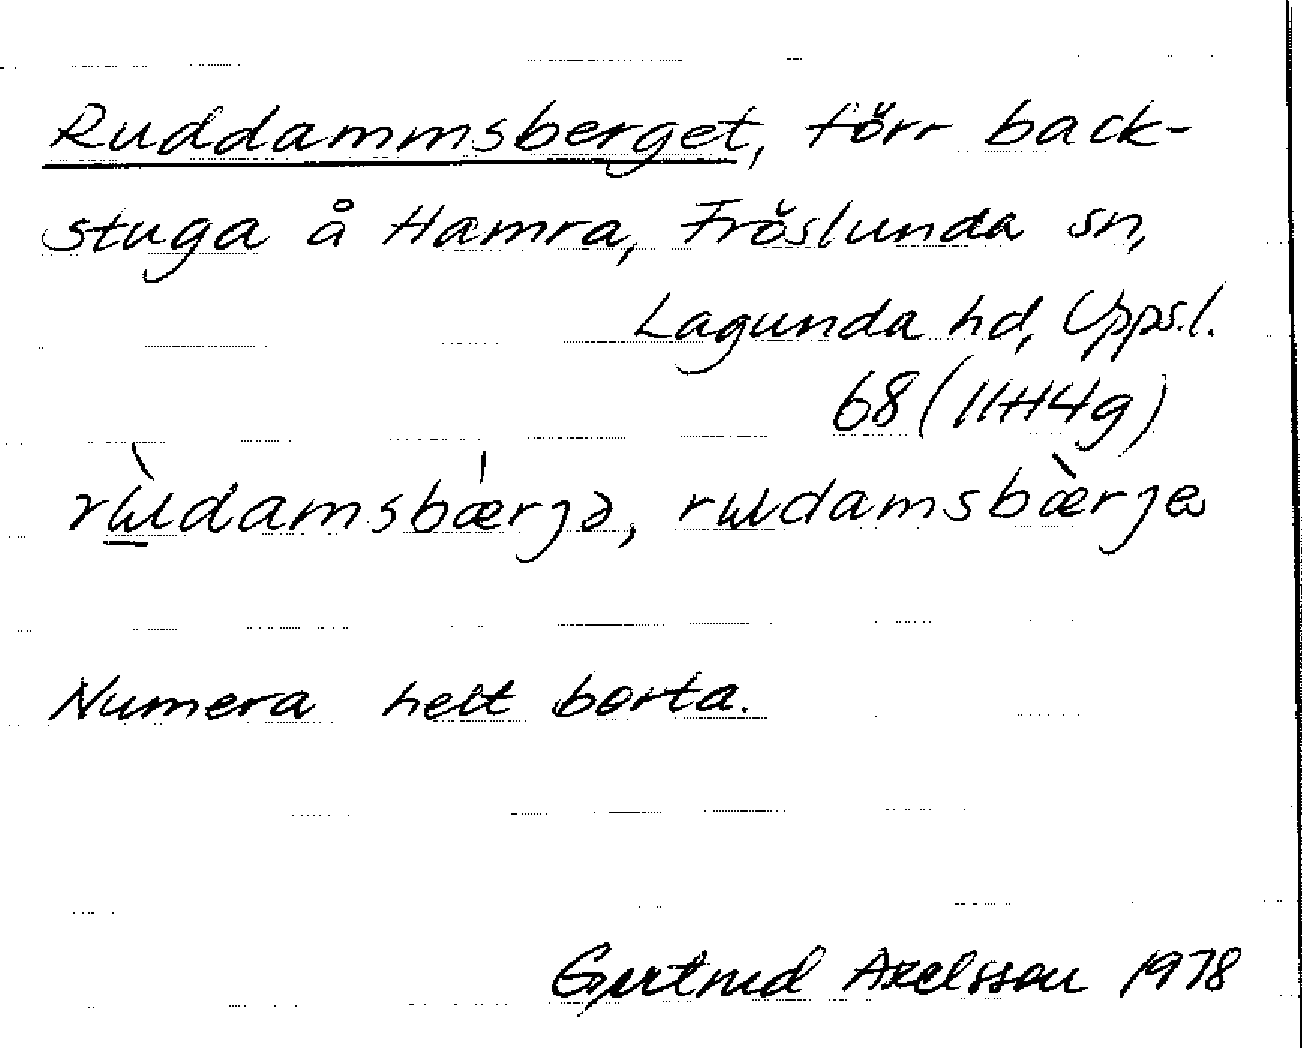 Ruddammsberget, förr back-
stuga å Hamra, Fröslunda sn,
Lagunda hd, Uppsl.
68 (11H4g)
rɯ̀damsbǽrjə, rɯdamsbæ̀rje
Numera helt borta.
Gertrud Axelsson 1978